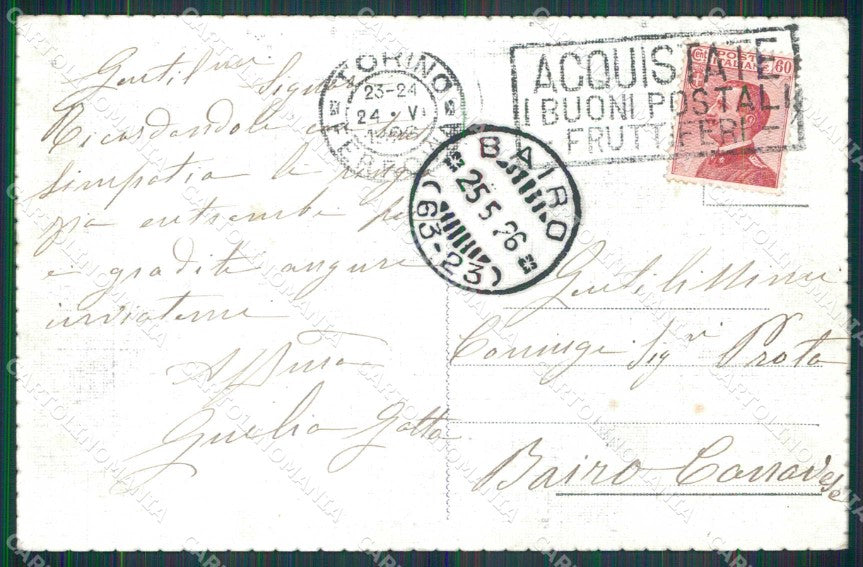 Gentil.me Signore
Ricordandole con
simpatia le
entrambi
e gradite auguri
inviatemi
Aff.ma
Giulia Gatta
TORINO
23-24
24 • V
1926
FERROVIA
ACQUISTATE
I BUONI POSTALI
FRUTTIFERI
POSTE
ITALIANE
60
BAIRO
25 5 26
(63-23)
Gentilissimi
Coniuge Sig.ri Prota
Bairo Canavese
CARTOLINOMANIA